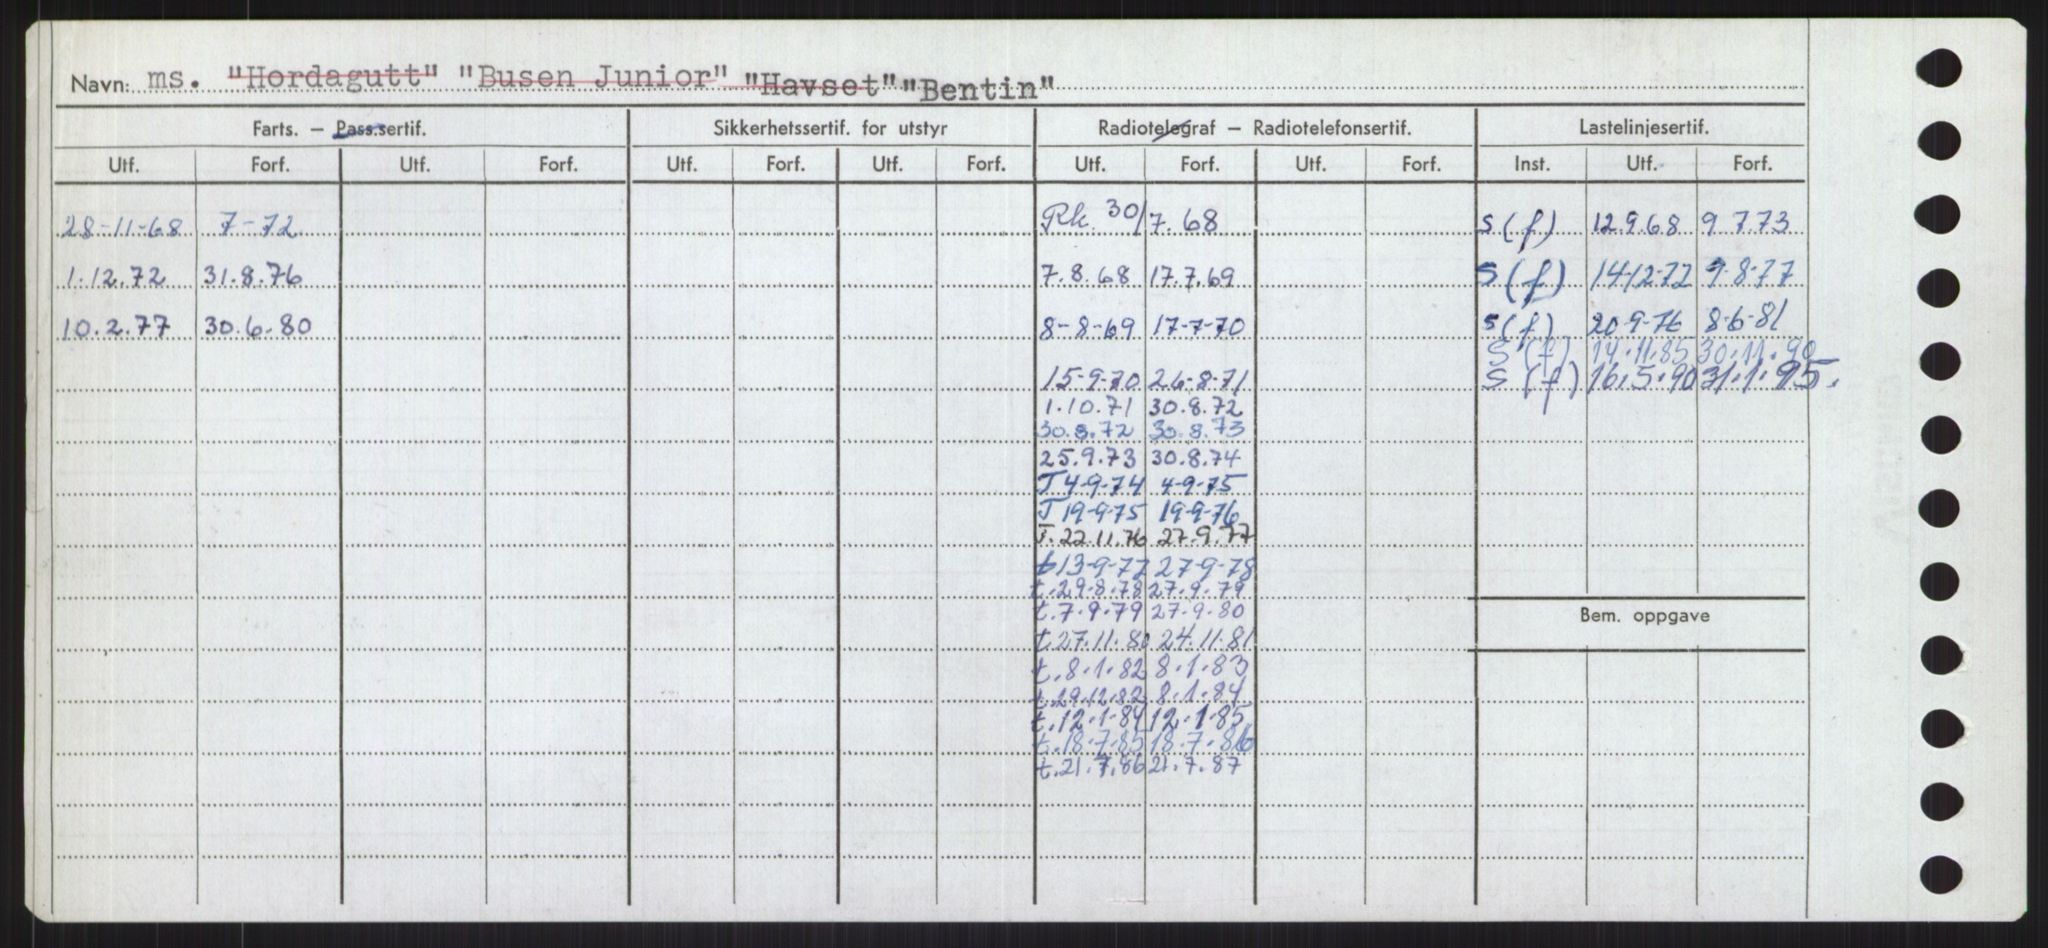 Navn: ms. "Hordagutt" "Busen Junior" "Havset" "Bentin"
Farts. – Pass.sertif. Sikkerhetssertif. for utstyr Radiotelegraf – Radiotelefonsertif. Lastelinjesertif.
Utf. Forf. Utf. Forf. Utf. Forf. Utf. Forf. Utf. Forf. Utf. Forf. Inst. Utf. Forf.
28-11-68 7-72 Rk. 30/7.68 S(f) 12.9.68 9 7.73
1.12.72 31.8.76 7.8.68 17.7.69 S(f) 14-12-72 9-8-77
10.2.77 30.6.80 8-8-69 17-7-70 S(f) 20-9-76 8-6-81
S(f) 14.11.85 30.11.90
15-9-70 26-8-71 S(f) 16.5.90 31.1.95.
1.10.71 30.8.72
30.8.72 30.8.73
25.9.73 30.8.74
T 4-9-74 4-9-75
T 19-9-75 19-9-76
T. 22.11.76 27.9.77
t 13-9-77 27-9-78
t. 29.8.78 27.9.79
t. 7.9.79 27.9.80
Bem. oppgave
t. 27.11.80 24.11.81
t. 8.1.82 8.1.83
t. 29.12.82 8.1.84
t. 12.1.84 12.1.85
t. 18.7.85 18.7.86
t. 21.7.86 21.7.87